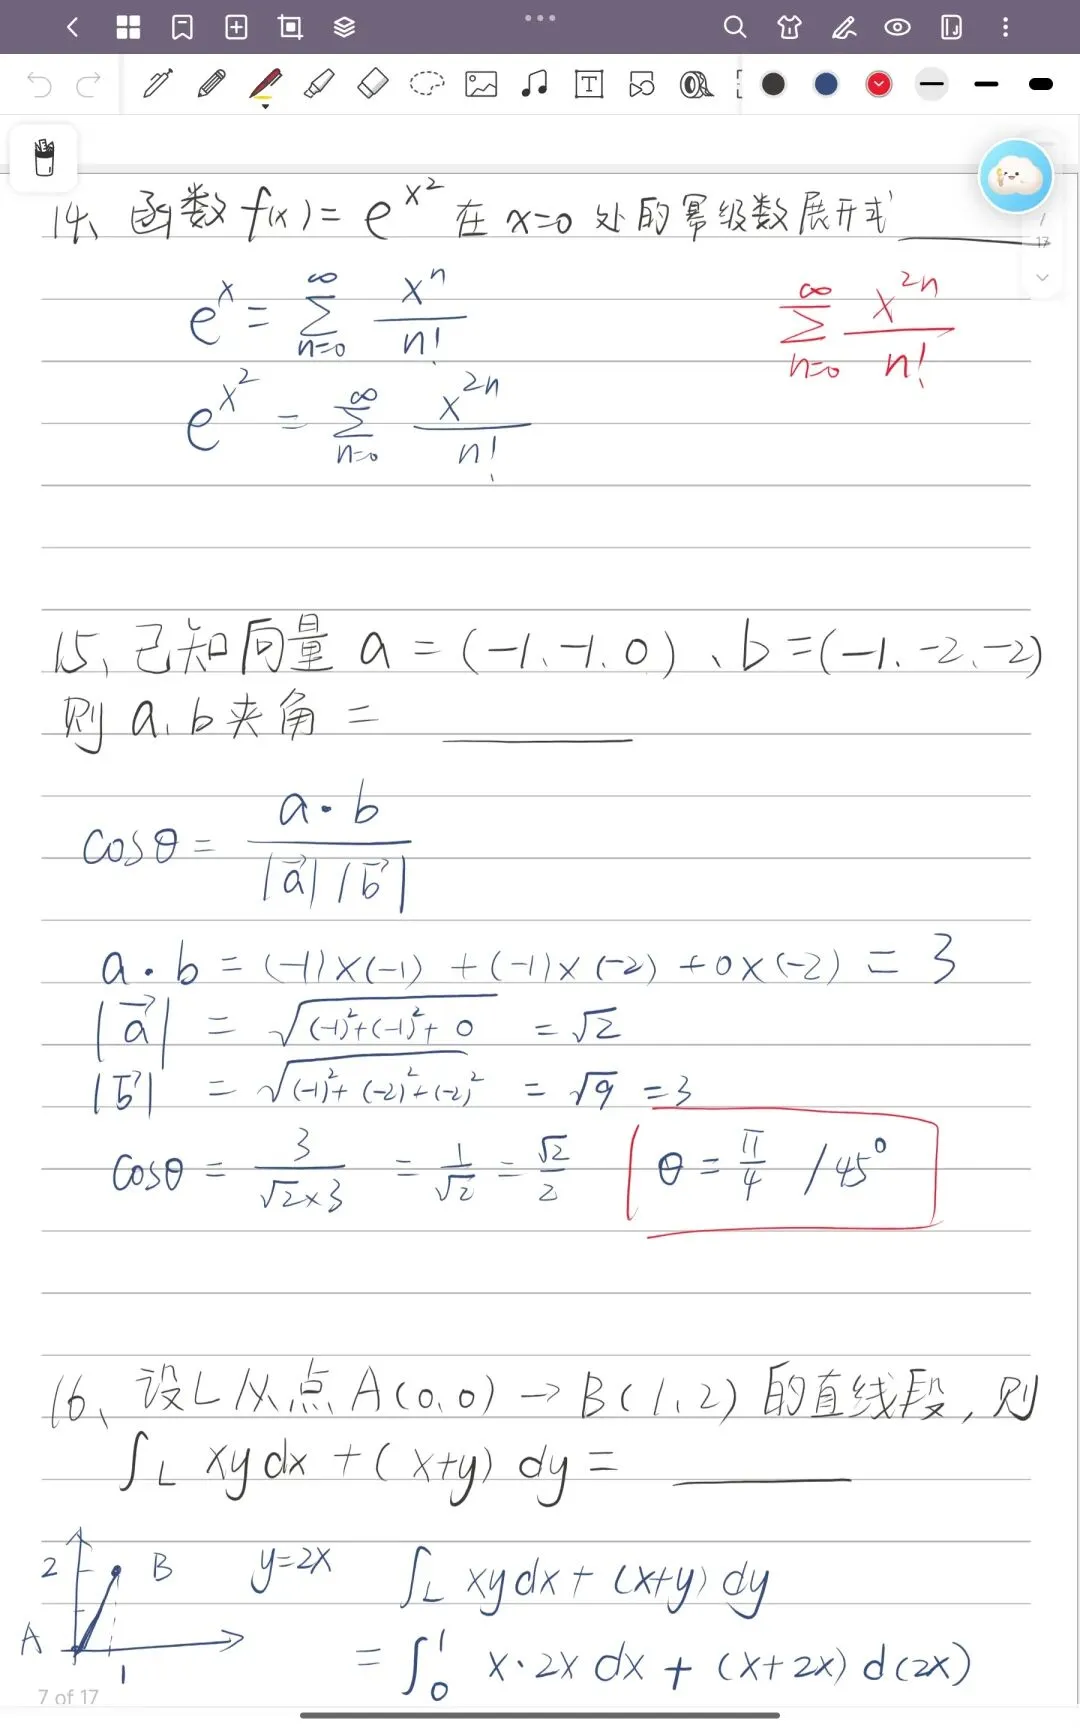 14、函数 f(x) = e^{x^2} 在 x=0 处的幂级数展开式 ______
e^x = \sum_{n=0}^{\infty} \frac{x^n}{n!}
\sum_{n=0}^{\infty} \frac{x^{2n}}{n!}
e^{x^2} = \sum_{n=0}^{\infty} \frac{x^{2n}}{n!}
15、已知向量 a = (-1、-1、0)、b = (-1、-2、-2)
则 a、b夹角 = ______
cosθ = \frac{a·b}{|\vec{a}| |\vec{b}|}
a·b = (-1)×(-1) + (-1)×(-2) + 0×(-2) = 3
|\vec{a}| = \sqrt{(-1)^2+(-1)^2+0} = \sqrt{2}
|\vec{b}| = \sqrt{(-1)^2+(-2)^2+(-2)^2} = \sqrt{9} = 3
cosθ = \frac{3}{\sqrt{2}×3} = \frac{1}{\sqrt{2}} = \frac{\sqrt{2}}{2} θ = \frac{π}{4} / 45°
16、设L从点A(0、0) → B(1、2)的直线段, 则
∫_L xydx + (x+y) dy = ______
2 B y=2x ∫_L xydx + (x+y) dy
A 1 = ∫_0^1 x·2x dx + (x+2x) d(2x)
7 of 17